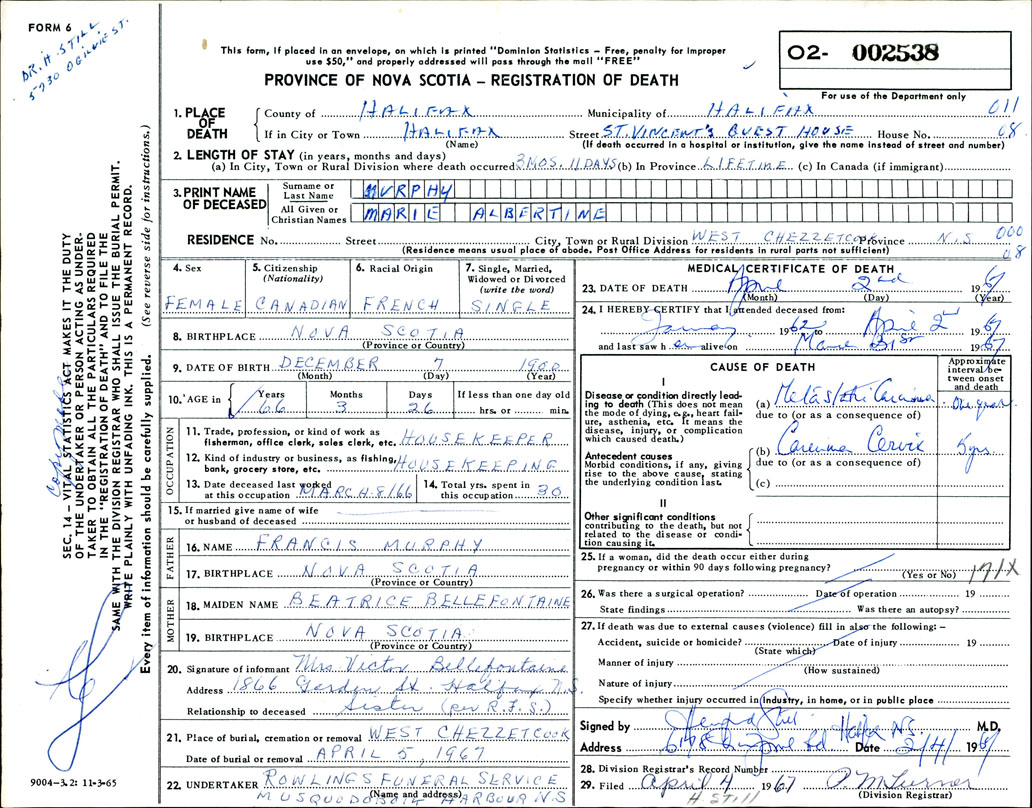 FORM 6
DR. H. STILL
5930 OGILVIE ST.
This form, if placed in an envelope, on which is printed "Dominion Statistics – Free, penalty for improper
use $50," and properly addressed will pass through the mail "FREE"
PROVINCE OF NOVA SCOTIA – REGISTRATION OF DEATH
O2- 002538
For use of the Department only
SEC. 14 – VITAL STATISTICS ACT MAKES IT THE DUTY
OF THE UNDERTAKER OR PERSON ACTING AS UNDER-
TAKER TO OBTAIN ALL THE PARTICULARS REQUIRED
IN THE "REGISTRATION OF DEATH" AND TO FILE THE
SAME WITH THE DIVISION REGISTRAR WHO SHALL ISSUE THE BURIAL PERMIT.
WRITE PLAINLY WITH UNFADING INK. THIS IS A PERMANENT RECORD.
Every item of information should be carefully supplied. (See reverse side for instructions.)
1. PLACE OF DEATH
County of HALIFAX Municipality of HALIFAX 011
If in City or Town HALIFAX Street ST. VINCENT'S GUEST HOUSE House No. 08
(Name) (If death occurred in a hospital or institution, give the name instead of street and number)
2. LENGTH OF STAY (in years, months and days)
(a) In City, Town or Rural Division where death occurred 3 MOS. 11 DAYS (b) In Province LIFETIME (c) In Canada (if immigrant)
3. PRINT NAME OF DECEASED
Surname or Last Name MURPHY
All Given or Christian Names MARIE ALBERTINE
RESIDENCE No. Street City, Town or Rural Division WEST CHEZZETCOOK Province N.S 000
(Residence means usual place of abode. Post Office Address for residents in rural parts not sufficient) 08
4. Sex FEMALE
5. Citizenship (Nationality) CANADIAN
6. Racial Origin FRENCH
7. Single, Married, Widowed or Divorced (write the word) SINGLE
8. BIRTHPLACE NOVA SCOTIA
(Province or Country)
9. DATE OF BIRTH DECEMBER 7 1900
(Month) (Day) (Year)
10. AGE in Years 66 Months 3 Days 26 If less than one day old hrs. or min.
OCCUPATION
11. Trade, profession, or kind of work as
fisherman, office clerk, sales clerk, etc. HOUSEKEEPER
12. Kind of industry or business, as fishing,
bank, grocery store, etc. HOUSEKEEPING
13. Date deceased last worked
at this occupation MARCH-8/66
14. Total yrs. spent in
this occupation 30
15. If married give name of wife
or husband of deceased
FATHER
16. NAME FRANCIS MURPHY
17. BIRTHPLACE NOVA SCOTIA
(Province or Country)
MOTHER
18. MAIDEN NAME BEATRICE BELLEFONTAINE
19. BIRTHPLACE NOVA SCOTIA
(Province or Country)
20. Signature of informant Mrs Victor Bellefontaine
Address 1866 Gordon St. Halifax N.S.
Relationship to deceased Sister (per R.F.S.)
21. Place of burial, cremation or removal WEST CHEZZETCOOK
Date of burial or removal APRIL 5, 1967
22. UNDERTAKER ROWLINGS FUNERAL SERVICE
(Name and address)
MUSQUODOBOIT HARBOUR N.S
9004–3.2: 11-3-65
MEDICAL CERTIFICATE OF DEATH
23. DATE OF DEATH April 2nd 1967
(Month) (Day) (Year)
24. I HEREBY CERTIFY that I attended deceased from:
1962 to April 2nd 1967
and last saw h er alive on 31st 1967
CAUSE OF DEATH
Approximate interval between onset and death
I
Disease or condition directly lead-
ing to death (This does not mean
the mode of dying, e.g., heart fail-
ure, asthenia, etc. It means the
disease, injury, or complication
which caused death.)
(a) Metastatic Carcinoma One year
due to (or as a consequence of)
Antecedent causes
Morbid conditions, if any, giving
rise to the above cause, stating
the underlying condition last.
(b) Carcinoma Cervix 5 yrs
due to (or as a consequence of)
(c)
II
Other significant conditions
contributing to the death, but not
related to the disease or condi-
tion causing it.
25. If a woman, did the death occur either during
pregnancy or within 90 days following pregnancy?
(Yes or No) 171X
26. Was there a surgical operation? Date of operation 19
State findings Was there an autopsy?
27. If death was due to external causes (violence) fill in also the following: –
Accident, suicide or homicide? Date of injury 19
(State which)
Manner of injury
(How sustained)
Nature of injury
Specify whether injury occurred in industry, in home, or in public place
Signed by Halifax N.S. M.D.
Address Date 2/4/ 1967
28. Division Registrar's Record Number
29. Filed April 4 1967
H Still (Division Registrar)